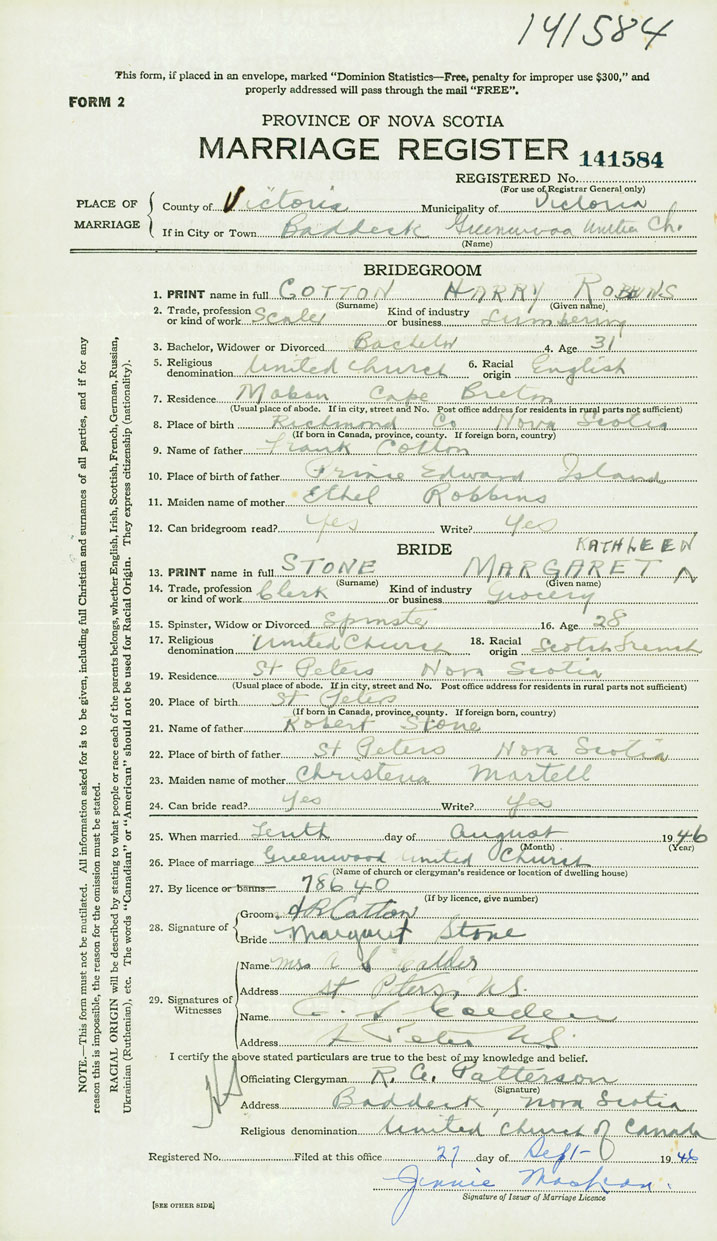 141584
This form, if placed in an envelope, marked "Dominion Statistics—Free, penalty for improper use $300," and
properly addressed will pass through the mail "FREE".
FORM 2
PROVINCE OF NOVA SCOTIA
MARRIAGE REGISTER 141584
REGISTERED No.
(For use of Registrar General only)
PLACE OF MARRIAGE
County of Victoria Municipality of Victoria
If in City or Town Baddeck Greenwood United Ch.
(Name)
BRIDEGROOM
1. PRINT name in full COTTON HARRY ROBBINS
(Surname) (Given name)
2. Trade, profession or kind of work Scaler Kind of industry or business Lumbering
3. Bachelor, Widower or Divorced Bachelor 4. Age 31
5. Religious denomination United Church 6. Racial origin English
7. Residence Mabou Cape Breton
(Usual place of abode. If in city, street and No. Post office address for residents in rural parts not sufficient)
8. Place of birth Richmond Co Nova Scotia
(If born in Canada, province, county. If foreign born, country)
9. Name of father Frank Cotton
10. Place of birth of father Prince Edward Island
11. Maiden name of mother Ethel Robbins
12. Can bridegroom read? Yes Write? Yes
BRIDE
KATHLEEN
13. PRINT name in full STONE MARGARET
(Surname) (Given name)
14. Trade, profession or kind of work Clerk Kind of industry or business Grocery
15. Spinster, Widow or Divorced Spinster 16. Age 28
17. Religious denomination United Church 18. Racial origin Scotch French
19. Residence St Peters Nova Scotia
(Usual place of abode. If in city, street and No. Post office address for residents in rural parts not sufficient)
20. Place of birth St Peters
(If born in Canada, province, county. If foreign born, country)
21. Name of father Robert Stone
22. Place of birth of father St Peters Nova Scotia
23. Maiden name of mother Christena Martell
24. Can bride read? Yes Write? Yes
25. When married Tenth day of August 1946
(Month) (Year)
26. Place of marriage Greenwood United Church
(Name of church or clergyman's residence or location of dwelling house)
27. By licence or banns 78640
(If by licence, give number)
28. Signature of
Groom HR Cotton
Bride Margaret Stone
29. Signatures of Witnesses
Name Mrs A
Address St Peters, N.S.
Name
Address St Peters N.S.
I certify the above stated particulars are true to the best of my knowledge and belief.
Officiating Clergyman R. A. Patterson
(Signature)
Address Baddeck, Nova Scotia
Religious denomination United Church of Canada
Registered No. Filed at this office 27 day of Sept 1946
Jennie
Signature of Issuer of Marriage Licence
[SEE OTHER SIDE]
NOTE.—This form must not be mutilated. All information asked for is to be given, including full Christian and surnames of all parties, and if for any
reason this is impossible, the reason for the omission must be stated.
RACIAL ORIGIN will be described by stating to what people or race each of the parents belongs, whether English, Irish, Scottish, French, German, Russian,
Ukrainian (Ruthenian), etc. The words "Canadian" or "American" should not be used for Racial Origin. They express citizenship (nationality).